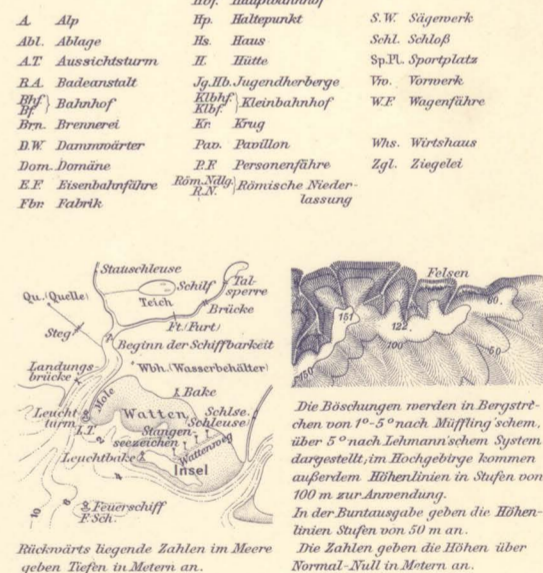 Hbf. Hauptbahnhof
A. Alp
Abl. Ablage
A.T. Aussichtsturm
B.A. Badeanstalt
Bhf. Bf. } Bahnhof
Brn. Brennerei
D.W. Dammwärter
Dom. Domäne
E.F. Eisenbahnfähre
Fbr. Fabrik
Hp. Haltepunkt
Hs. Haus
H. Hütte
Jg.Hb. Jugendherberge
Klbhf. Klbf. } Kleinbahnhof
Kr. Krug
Pav. Pavillon
P.F. Personenfähre
Röm.Ndlg. R.N. } Römische Nieder-
lassung
S.W. Sägewerk
Schl. Schloß
Sp.Pl. Sportplatz
Vw. Vorwerk
W.F. Wagenfähre
Whs. Wirtshaus
Zgl. Ziegelei
Stauschleuse
Schilf
Tal-
sperre
Qu. (Quelle)
Teich
Brücke
Steg
Ft. (Furt)
Beginn der Schiffbarkeit
Landungs-
brücke
Wbh. (Wasserbehälter)
Mole
Bake
Leucht-
turm
L.T.
Watten
Schlse.
Schleuse
Stangen-
seezeichen
Wattenweg
Leuchtbake
Insel
2
4
6
10
Feuerschiff
F.Sch.
Rückwärts liegende Zahlen im Meere
geben Tiefen in Metern an.
Felsen
151
122
100
60
50
150
Die Böschungen werden in Bergstri-
chen von 1°-5° nach Müffling'schem,
über 5° nach Lehmann'schem System
dargestellt, im Hochgebirge kommen
außerdem Höhenlinien in Stufen von
100 m zur Anwendung.
In der Buntausgabe geben die Höhen-
linien Stufen von 50 m an.
Die Zahlen geben die Höhen über
Normal-Null in Metern an.